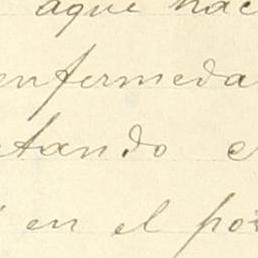 aqui hac
enfermeda
tando e
en el po